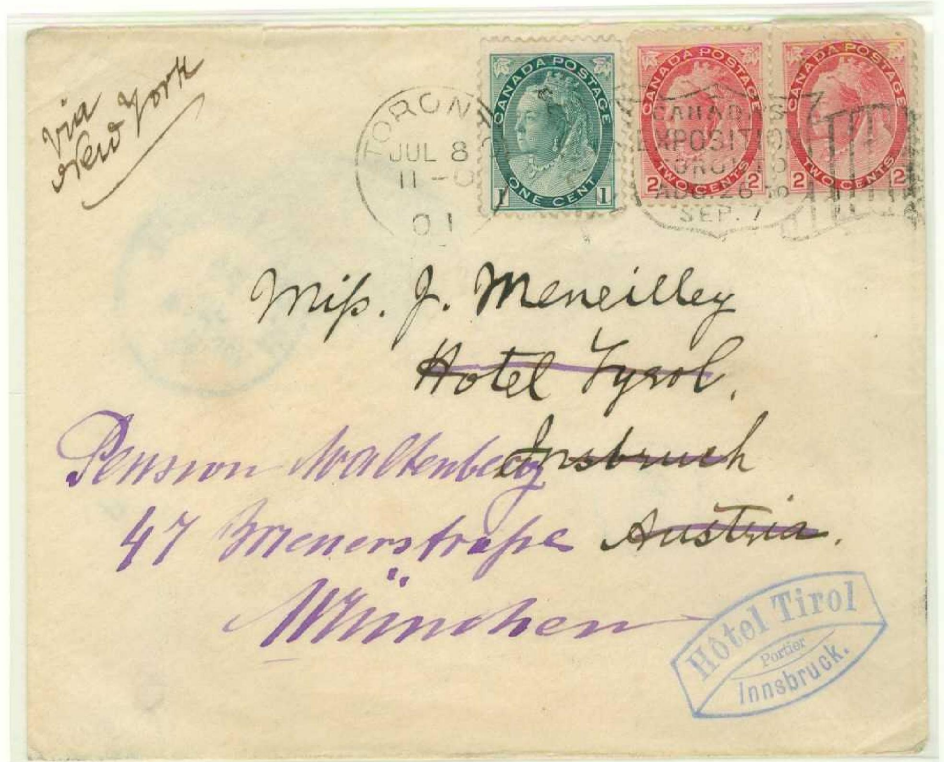 via
New York
TORON
JUL 8
11-0
01
CANADA POSTAGE
1 ONE CENT 1
CANADA POSTAGE
2 TWO CENTS 2
CANADA POSTAGE
2 TWO CENTS 2
CANADIAN
EXPOSITION
TORONTO
AUG. 26 TO
SEP. 7
Miss. J. Meneilley
Hotel Tyrol,
Insbruch
Austria.
Pension Waltenberg
47 Brienerstraße
München
Hôtel Tirol
Portier
Innsbruck.